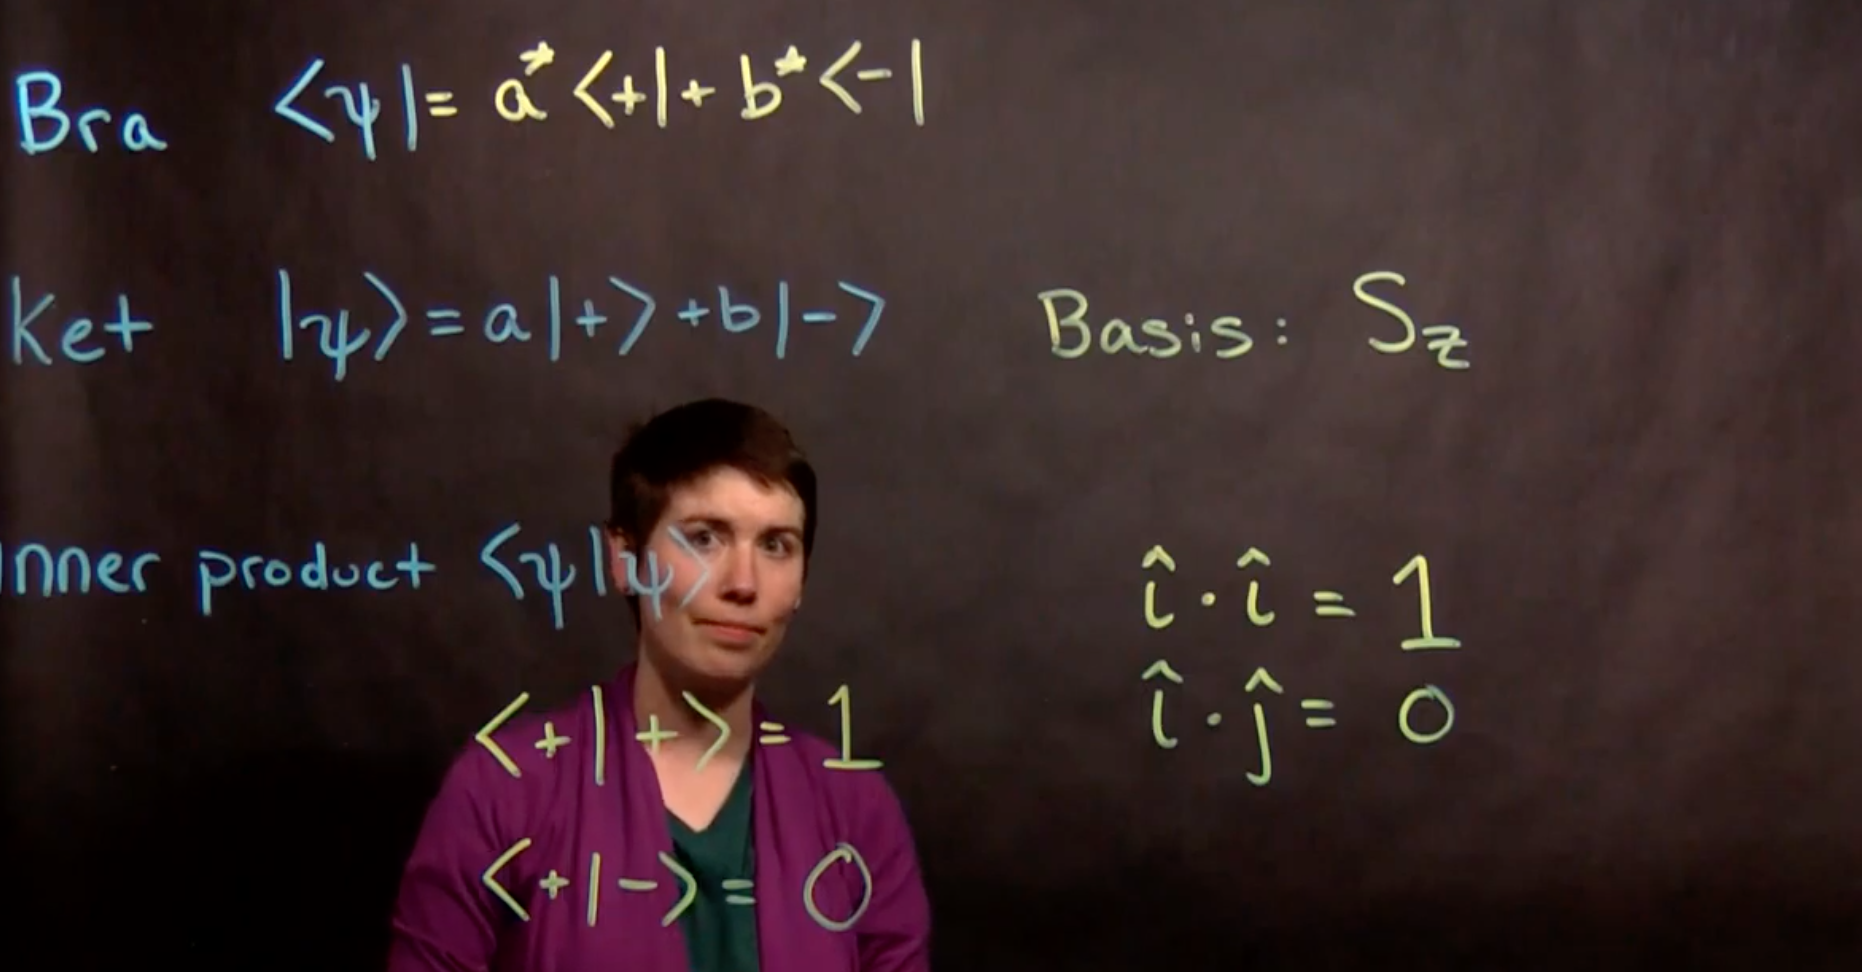 Bra ⟨ψ| = a* ⟨+| + b* ⟨-|
Ket |ψ⟩ = a|+⟩ + b|-⟩ Basis: Sz
Inner product ⟨ψ|ψ⟩
î · î = 1
î · ĵ = 0
⟨+|+⟩ = 1
⟨+|-⟩ = 0